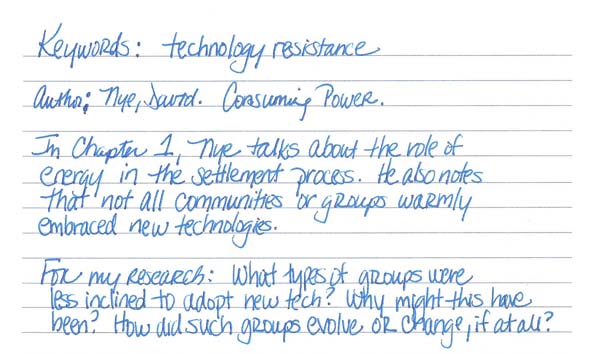 Keywords: technology resistance
Author: Nye, David. Consuming Power.
In Chapter 1, Nye talks about the role of
energy in the settlement process. He also notes
that not all communities or groups warmly
embraced new technologies.
For my research: What types of groups were
less inclined to adopt new tech? Why might this have
been? How did such groups evolve or change, if at all?